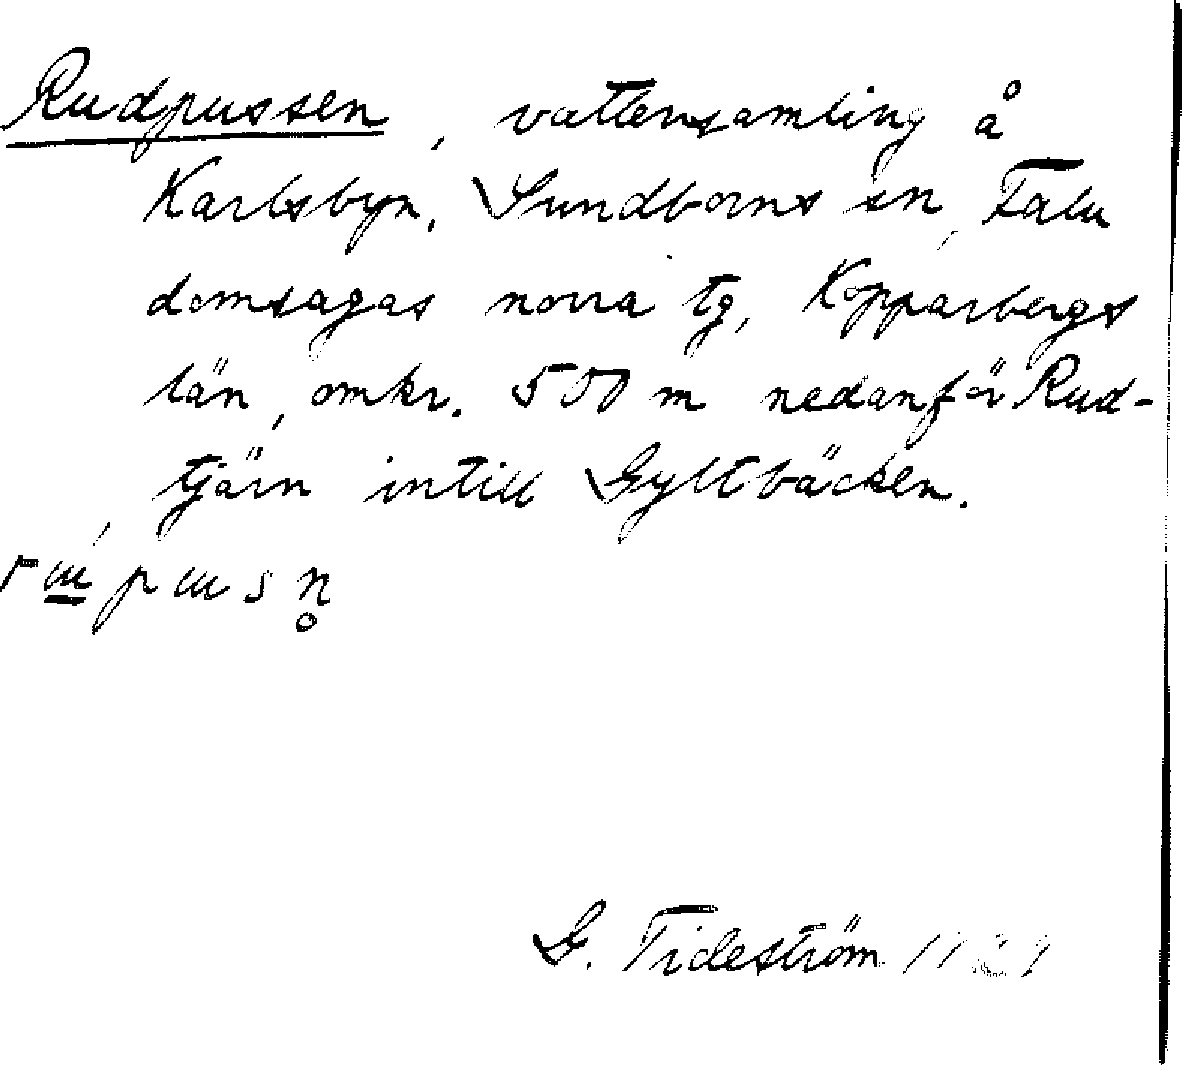 Rudpussen, vattensamling å
Karlsbyn, Sundborns sn, Falu
domsagas norra tg, Kopparbergs
län, omkr. 500 m nedanför Rud-
tjärn intill Gyltbäcken.
G. Tideström